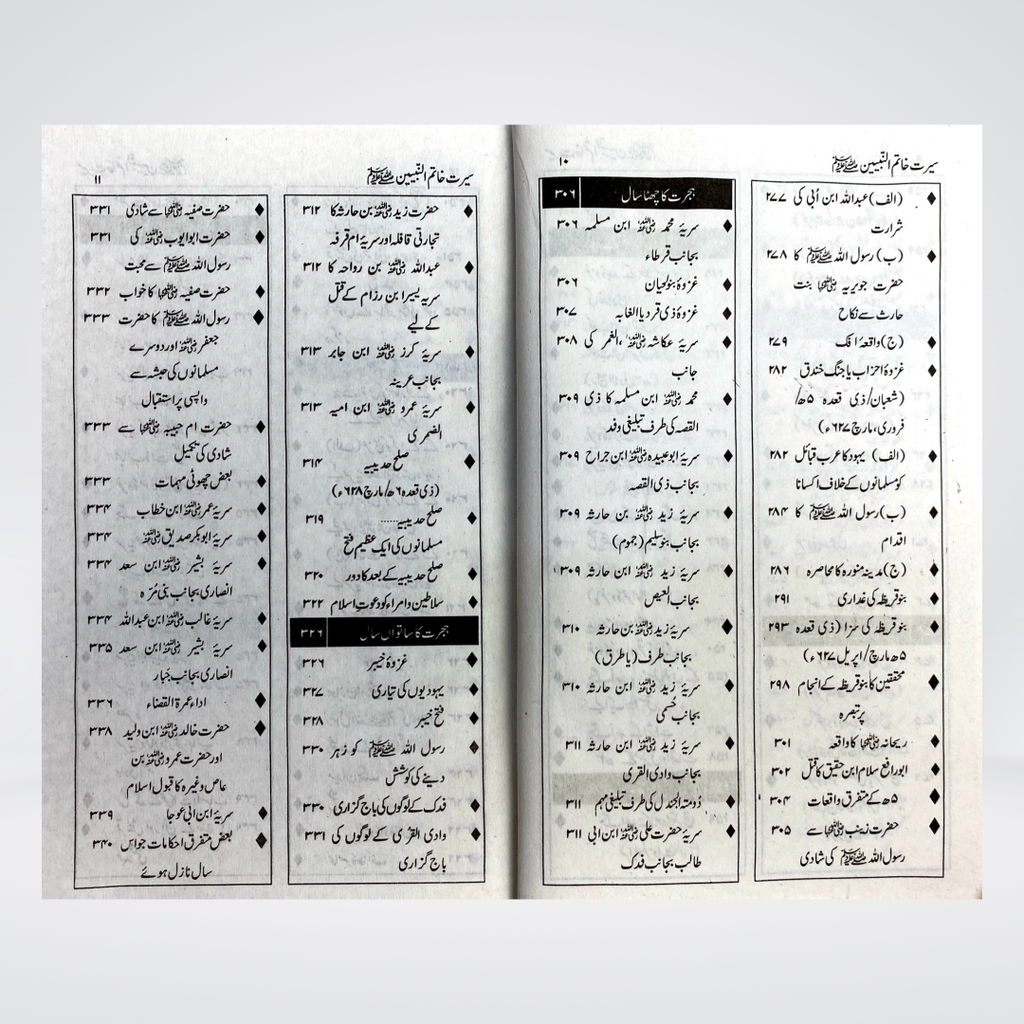 سیرت خاتم النّبیین ﷺ
۱۰
(الف) عبداللہ ابن اُبی کی ۲۷۷
شرارت
(ب) رسول اللہ ﷺ کا ۲۷۸
حضرت جویریہ رضی اللہ عنہا بنت
حارث سے نکاح
(ج) واقعۂ افک ۲۷۹
غزوۂ احزاب یا جنگ خندق ۲۸۲
(شعبان/ ذی قعدہ ۵ھ/
فروری، مارچ ۶۲۷ء)
(الف) یہود کا عرب قبائل ۲۸۲
کو مسلمانوں کے خلاف اکسانا
(ب) رسول اللہ ﷺ کا ۲۸۴
اقدام
(ج) مدینہ منورہ کا محاصرہ ۲۸۶
بنو قریظہ کی غداری ۲۹۱
بنو قریظہ کی سزا (ذی قعدہ ۲۹۳
۵ھ مارچ/ اپریل ۶۲۷ء)
محققین کا بنو قریظہ کے انجام ۲۹۸
پر تبصرہ
ریحانہ رضی اللہ عنہا کا واقعہ ۳۰۱
ابورافع سلام ابن حقیق کا قتل ۳۰۲
۵ھ کے متفرق واقعات ۳۰۴
حضرت زینب رضی اللہ عنہا سے ۳۰۵
رسول اللہ ﷺ کی شادی
ہجرت کا چھٹا سال ۳۰۶
سریۂ محمد رضی اللہ عنہ ابن مسلمہ ۳۰۶
بجانب قرطاء
غزوۂ بنو لحیان ۳۰۶
غزوۂ ذی قرد یا الغابہ ۳۰۷
سریۂ عکاشہ رضی اللہ عنہ ، الغمر کی ۳۰۸
جانب
محمد رضی اللہ عنہ ابن مسلمہ کا ذی ۳۰۹
القصہ کی طرف تبلیغی وفد
سریۂ ابوعبیدہ رضی اللہ عنہ ابن جراح ۳۰۹
بجانب ذی القصہ
سریۂ زید رضی اللہ عنہ بن حارثہ ۳۰۹
بجانب بنو سلیم (جموم)
سریۂ زید رضی اللہ عنہ ابن حارثہ ۳۰۹
بجانب العیص
سریۂ زید رضی اللہ عنہ بن حارثہ ۳۱۰
بجانب طرف (یا طرق)
سریۂ زید رضی اللہ عنہ ابن حارثہ ۳۱۰
بجانب حُسمی
سریۂ زید رضی اللہ عنہ ابن حارثہ ۳۱۱
بجانب وادی القریٰ
دُومتہ الجندل کی طرف تبلیغی مہم ۳۱۱
سریۂ حضرت علی رضی اللہ عنہ ابن ابی ۳۱۱
طالب بجانب فدک
سیرت خاتم النّبیین ﷺ
۱۱
حضرت زید رضی اللہ عنہ بن حارثہ کا ۳۱۲
تجارتی قافلہ اور سریۂ ام قرفہ
عبداللہ رضی اللہ عنہ بن رواحہ کا ۳۱۲
سریہ یسیر ابن رزام کے قتل
کے لیے
سریۂ کرز رضی اللہ عنہ ابن جابر ۳۱۳
بجانب عرینہ
سریۂ عمرو رضی اللہ عنہ ابن امیہ ۳۱۳
الضمری
صلح حدیبیہ ۳۱۴
(ذی قعدہ ۶ھ/ مارچ ۶۲۸ء)
صلح حدیبیہ...... ۳۱۹
مسلمانوں کی ایک عظیم فتح
صلح حدیبیہ کے بعد کا دور ۳۲۰
سلاطین و امراء کو دعوتِ اسلام ۳۲۲
ہجرت کا ساتواں سال ۳۲۶
غزوۂ خیبر ۳۲۶
یہودیوں کی تیاری ۳۲۷
فتح خیبر ۳۲۸
رسول اللہ ﷺ کو زہر ۳۳۰
دینے کی کوشش
فدک کے لوگوں کی باج گزاری ۳۳۰
وادی القرٰی کے لوگوں کی ۳۳۱
باج گزاری
حضرت صفیہ رضی اللہ عنہا سے شادی ۳۳۱
حضرت ابو ایوب رضی اللہ عنہ کی ۳۳۱
رسول اللہ ﷺ سے محبت
حضرت صفیہ رضی اللہ عنہا کا خواب ۳۳۲
رسول اللہ ﷺ کا حضرت ۳۳۳
جعفر رضی اللہ عنہ اور دوسرے
مسلمانوں کی حبشہ سے
واپسی پر استقبال
حضرت ام حبیبہ رضی اللہ عنہا سے ۳۳۳
شادی کی تکمیل
بعض چھوٹی مہمات ۳۳۳
سریۂ عمر رضی اللہ عنہ ابن خطاب ۳۳۴
سریۂ ابوبکر صدیق رضی اللہ عنہ ۳۳۴
سریۂ بشیر رضی اللہ عنہ ابن سعد ۳۳۴
انصاری بجانب بنی مُرّہ
سریۂ غالب رضی اللہ عنہ ابن عبداللہ ۳۳۴
سریۂ بشیر رضی اللہ عنہ ابن سعد ۳۳۵
انصاری بجانب جَبار
اداء عمرۃ القضاء ۳۳۶
حضرت خالد رضی اللہ عنہ ابن ولید ۳۳۸
اور حضرت عمرو رضی اللہ عنہ بن
عاص وغیرہ کا قبول اسلام
سریۂ ابن ابی عوجا ۳۳۹
بعض متفرق احکامات جو اس ۳۴۰
سال نازل ہوئے